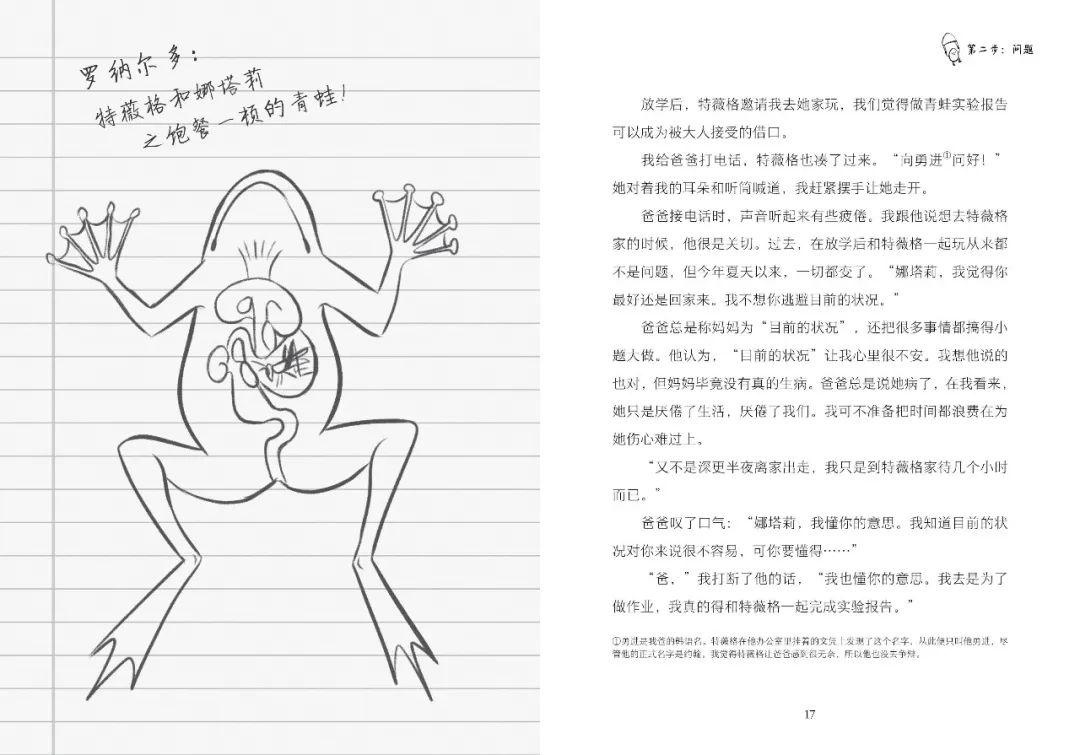 罗纳尔多：
特薇格和娜塔莉
之饱餐一顿的青蛙！
第二步：问题
放学后，特薇格邀请我去她家玩，我们觉得做青蛙实验报告
可以成为被大人接受的借口。
我给爸爸打电话，特薇格也凑了过来。“向勇进①问好！”
她对着我的耳朵和听筒喊道，我赶紧摆手让她走开。
爸爸接电话时，声音听起来有些疲倦。我跟他说想去特薇格
家的时候，他很是关切。过去，在放学后和特薇格一起玩从来都
不是问题，但今年夏天以来，一切都变了。“娜塔莉，我觉得你
最好还是回家来。我不想你逃避目前的状况。”
爸爸总是称妈妈为“目前的状况”，还把很多事情都搞得小
题大做。他认为，“目前的状况”让我心里很不安。我想他说的
也对，但妈妈毕竟没有真的生病。爸爸总是说她病了，在我看来，
她只是厌倦了生活，厌倦了我们。我可不准备把时间都浪费在为
她伤心难过上。
“又不是深更半夜离家出走，我只是到特薇格家待几个小时
而已。”
爸爸叹了口气：“娜塔莉，我懂你的意思。我知道目前的状
况对你来说很不容易，可你要懂得……”
“爸，”我打断了他的话，“我也懂你的意思。我去是为了
做作业，我真的得和特薇格一起完成实验报告。”
①勇进是我爸的韩语名。特薇格在他办公室里挂着的文凭上发现了这个名字，从此便只叫他勇进，尽
管他的正式名字是约翰。我觉得特薇格让爸爸感到很无奈，所以他也没去争辩。
17